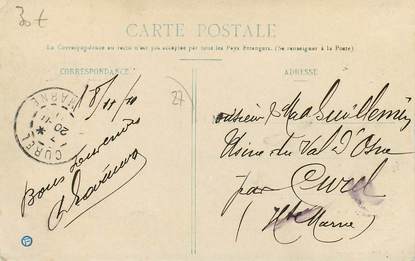 30 €
CARTE POSTALE
La Correspondance au recto n'est pas acceptée par tous les Pays Etrangers. (Se renseigner à la Poste)
CORRESPONDANCE
ADRESSE
27
CUREL
MARNE
20
Bons souvenirs
Monsieur & Mad Guillemin
Usine du Val d'Osne
par Curel
(Hte Marne)